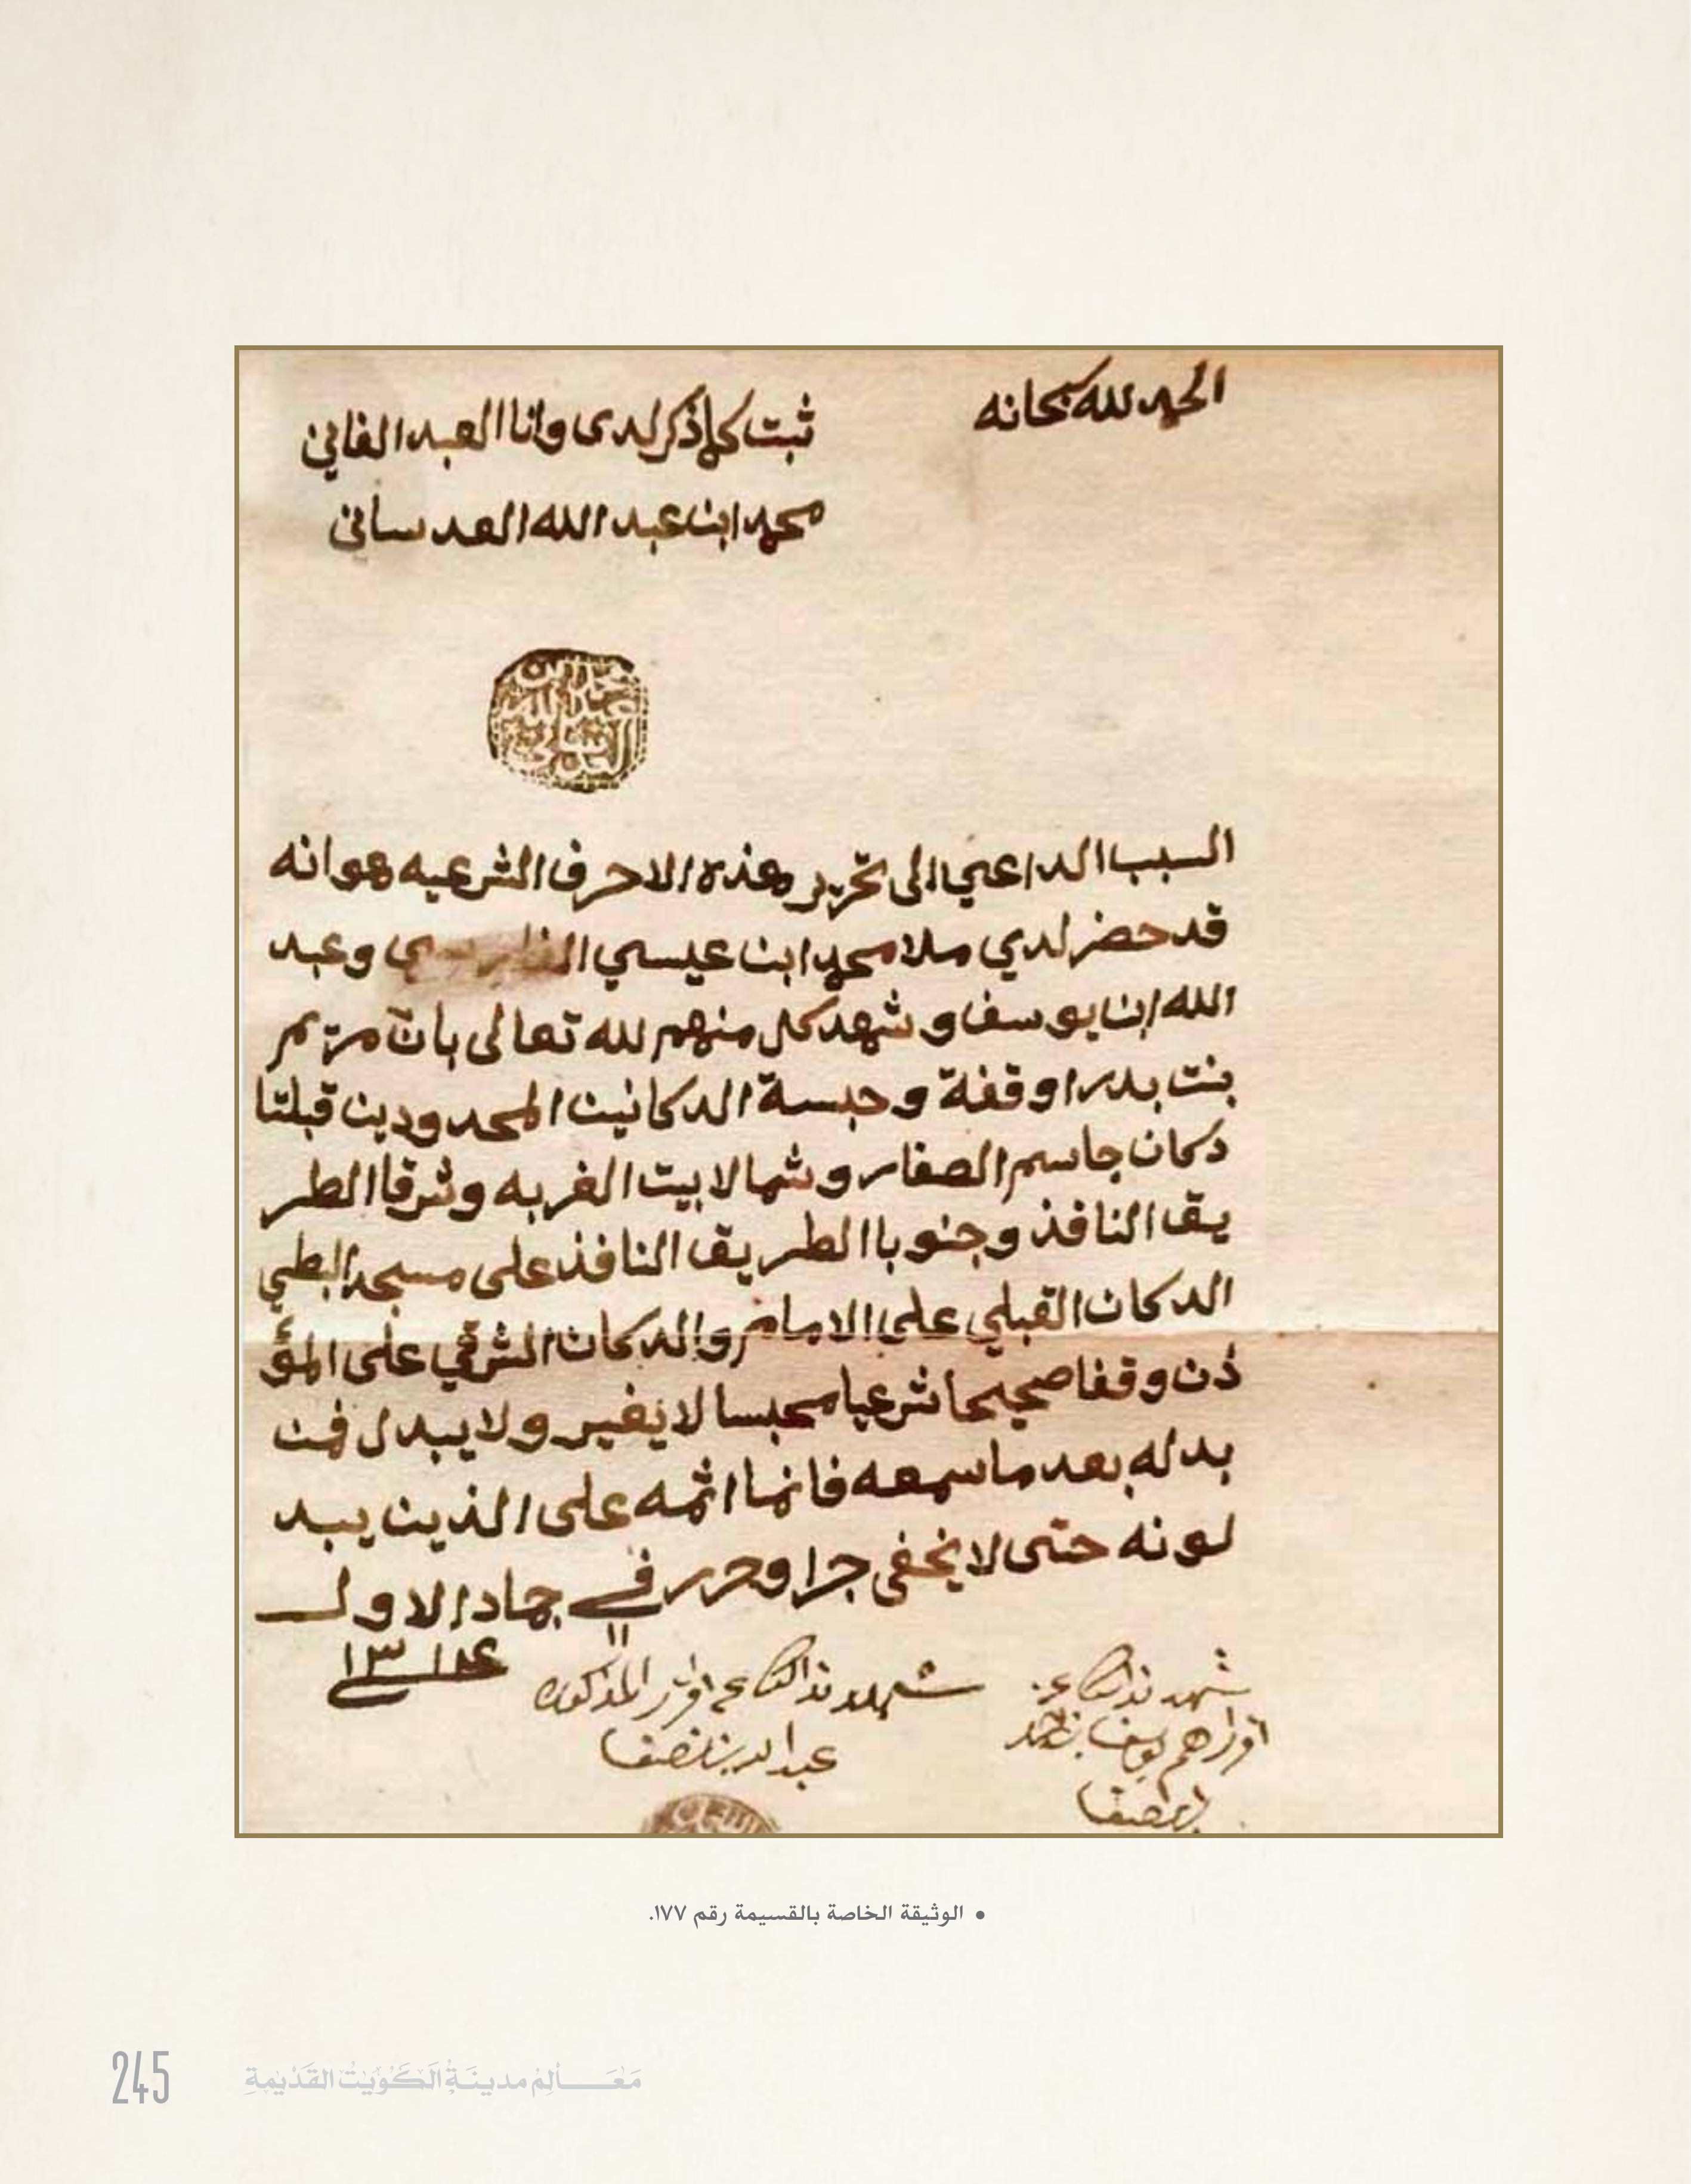 الحمد لله سبحانه
ثبت كلما ذكر لدى وانا العبد الفاني
محمد ابن عبد الله العدساني
محمد بن
عبد الله
العدساني
السبب الداعي الى تحرير هذه الاحرف الشرعيه هو انه
قد حضر لدي ملا محمد ابن عيسي وعبد
الله ابن يوسف و شهد كل منهم لله تعالى بان مريم
بنت بدر اوقفة و حبسة الدكانين المحدودين قبلتا
دكان جاسم الصفار و شمالا بيت الغربه و شرقا الطر
يق النافذ و جنوبا الطريق النافذ على مسجد البطي
الدكان القبلي على الامام والدكان الشرقي على المؤ
ذن وقفا صحيحا شرعيا محبسا لا يغير ولا يبدل فمن
بدله بعد ما سمعه فانما اثمه على الذين يبد
لونه حتى لا يخفى جرا وحرر في جماد الاول
١١ ١٣١٤
شهد بذالك
شهد بذالك المذكور
يوسف بن
• الوثيقة الخاصة بالقسيمة رقم ١٧٧.
245 مَعَالِم مدينَة الكُوَيْت القَدْيمة